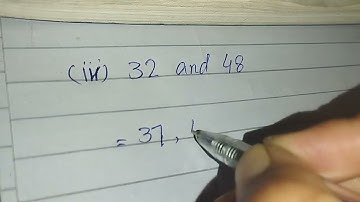 (iii) 32 and 48
= 37,